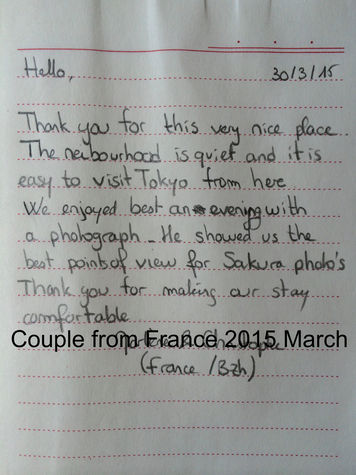 Hello,
30/3/15
Thank you for this very nice place.
The neibourhood is quiet and it is
easy to visit Tokyo from here
We enjoyed best an evening with
a photograph - He showed us the
best points of view for Sakura photo's
Thank you for making our stay
comfortable.
Couple from France 2015 March
(France / Bzh)